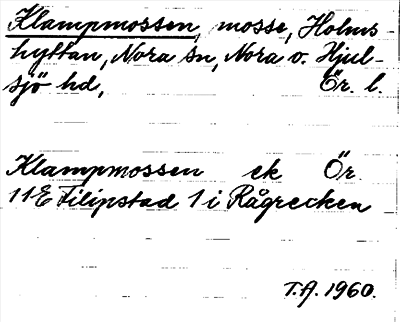 Klampmossen, mosse, Holms
hyttan, Nora sn, Nora o. Hjul-
sjö hd, Ör. l.
Klampmossen ek Ör.
11E Filipstad 1 i Rågrecken
T.A. 1960.